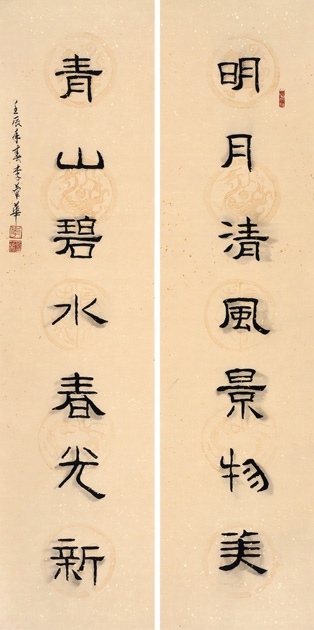 明月清風景物美
青山碧水春光新
壬辰年春李
華